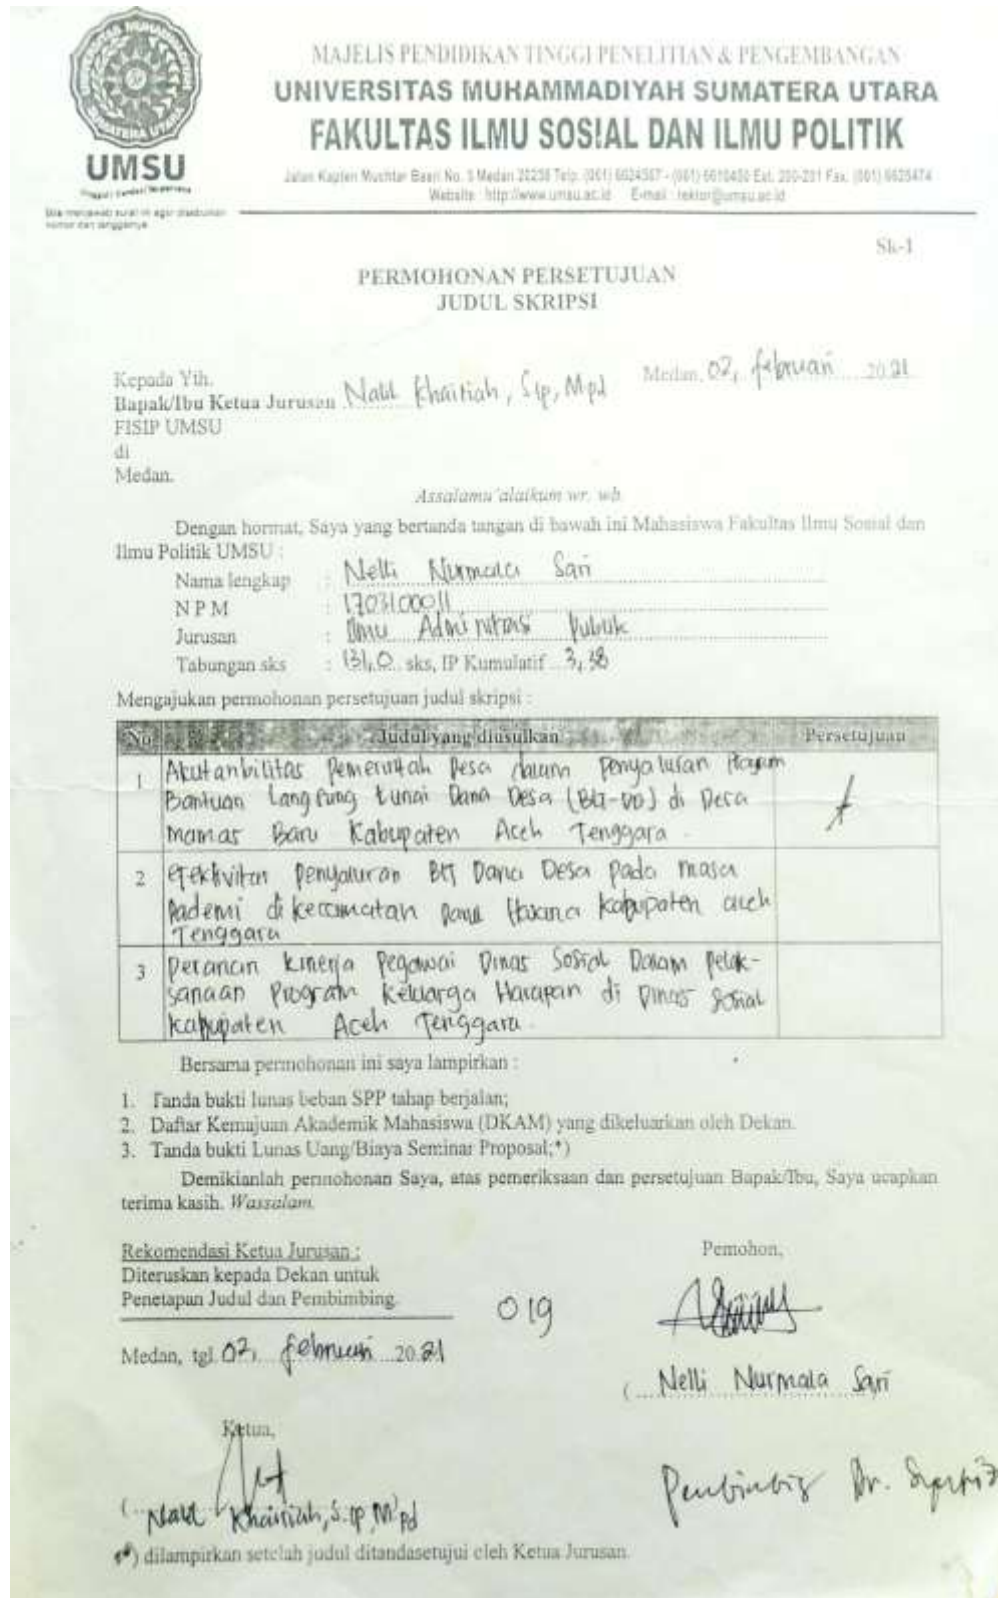 MAJELIS PENDIDIKAN TINGGI PENELITIAN & PENGEMBANGAN
UNIVERSITAS MUHAMMADIYAH SUMATERA UTARA
FAKULTAS ILMU SOSIAL DAN ILMU POLITIK
UMSU
Jalan Kapten Muchtar Basri No. 3 Medan 20238 Telp. (061) 6624567 - (061) 6610450 Ext. 200-201 Fax. (061) 6625474
Website : http://www.umsu.ac.id E-mail : rektor@umsu.ac.id
Bila menjawab surat ini agar disebutkan
nomor dan tanggalnya
Sk-1
PERMOHONAN PERSETUJUAN
JUDUL SKRIPSI
Medan, 02, februari 2021
Kepada Yth.
Bapak/Ibu Ketua Jurusan Khairiah, Sip, Mpd
FISIP UMSU
di
Medan.
Assalamu'alaikum wr. wb.
Dengan hormat, Saya yang bertanda tangan di bawah ini Mahasiswa Fakultas Ilmu Sosial dan
Ilmu Politik UMSU :
Nama lengkap : Nelli Nurmala Sari
N P M : 1703100011
Jurusan : Ilmu Publik
Tabungan sks : 131,0 sks, IP Kumulatif 3,38
Mengajukan permohonan persetujuan judul skripsi :
No Judul yang diusulkan Persetujuan
1 Pemerintah Desa dalam Penyaluran
Bantuan Langsung Tunai Dana Desa (BLT-DD) di Desa
Mamas Baru Kabupaten Aceh Tenggara
2 Penyaluran BLT Dana Desa pada masa
Pademi di kecamatan Kabupaten aceh
Tenggara
3 kinerja Pegawai Dinas Sosial Dalam Pelak-
sanaan Program Keluarga Harapan di Dinas Sosial
Kabupaten Aceh Tenggara.
Bersama permohonan ini saya lampirkan :
1. Tanda bukti lunas beban SPP tahap berjalan;
2. Daftar Kemajuan Akademik Mahasiswa (DKAM) yang dikeluarkan oleh Dekan.
3. Tanda bukti Lunas Uang/Biaya Seminar Proposal;*)
Demikianlah permohonan Saya, atas pemeriksaan dan persetujuan Bapak/Ibu, Saya ucapkan
terima kasih. Wassalam.
Rekomendasi Ketua Jurusan :
Diteruskan kepada Dekan untuk
Penetapan Judul dan Pembimbing.
019
Medan, tgl. 02, februari 2021
Pemohon,
( Nelli Nurmala Sari
Ketua,
( Khairiah, S.ip, M.pd
Dr.
*) dilampirkan setelah judul ditandasetujui oleh Ketua Jurusan.